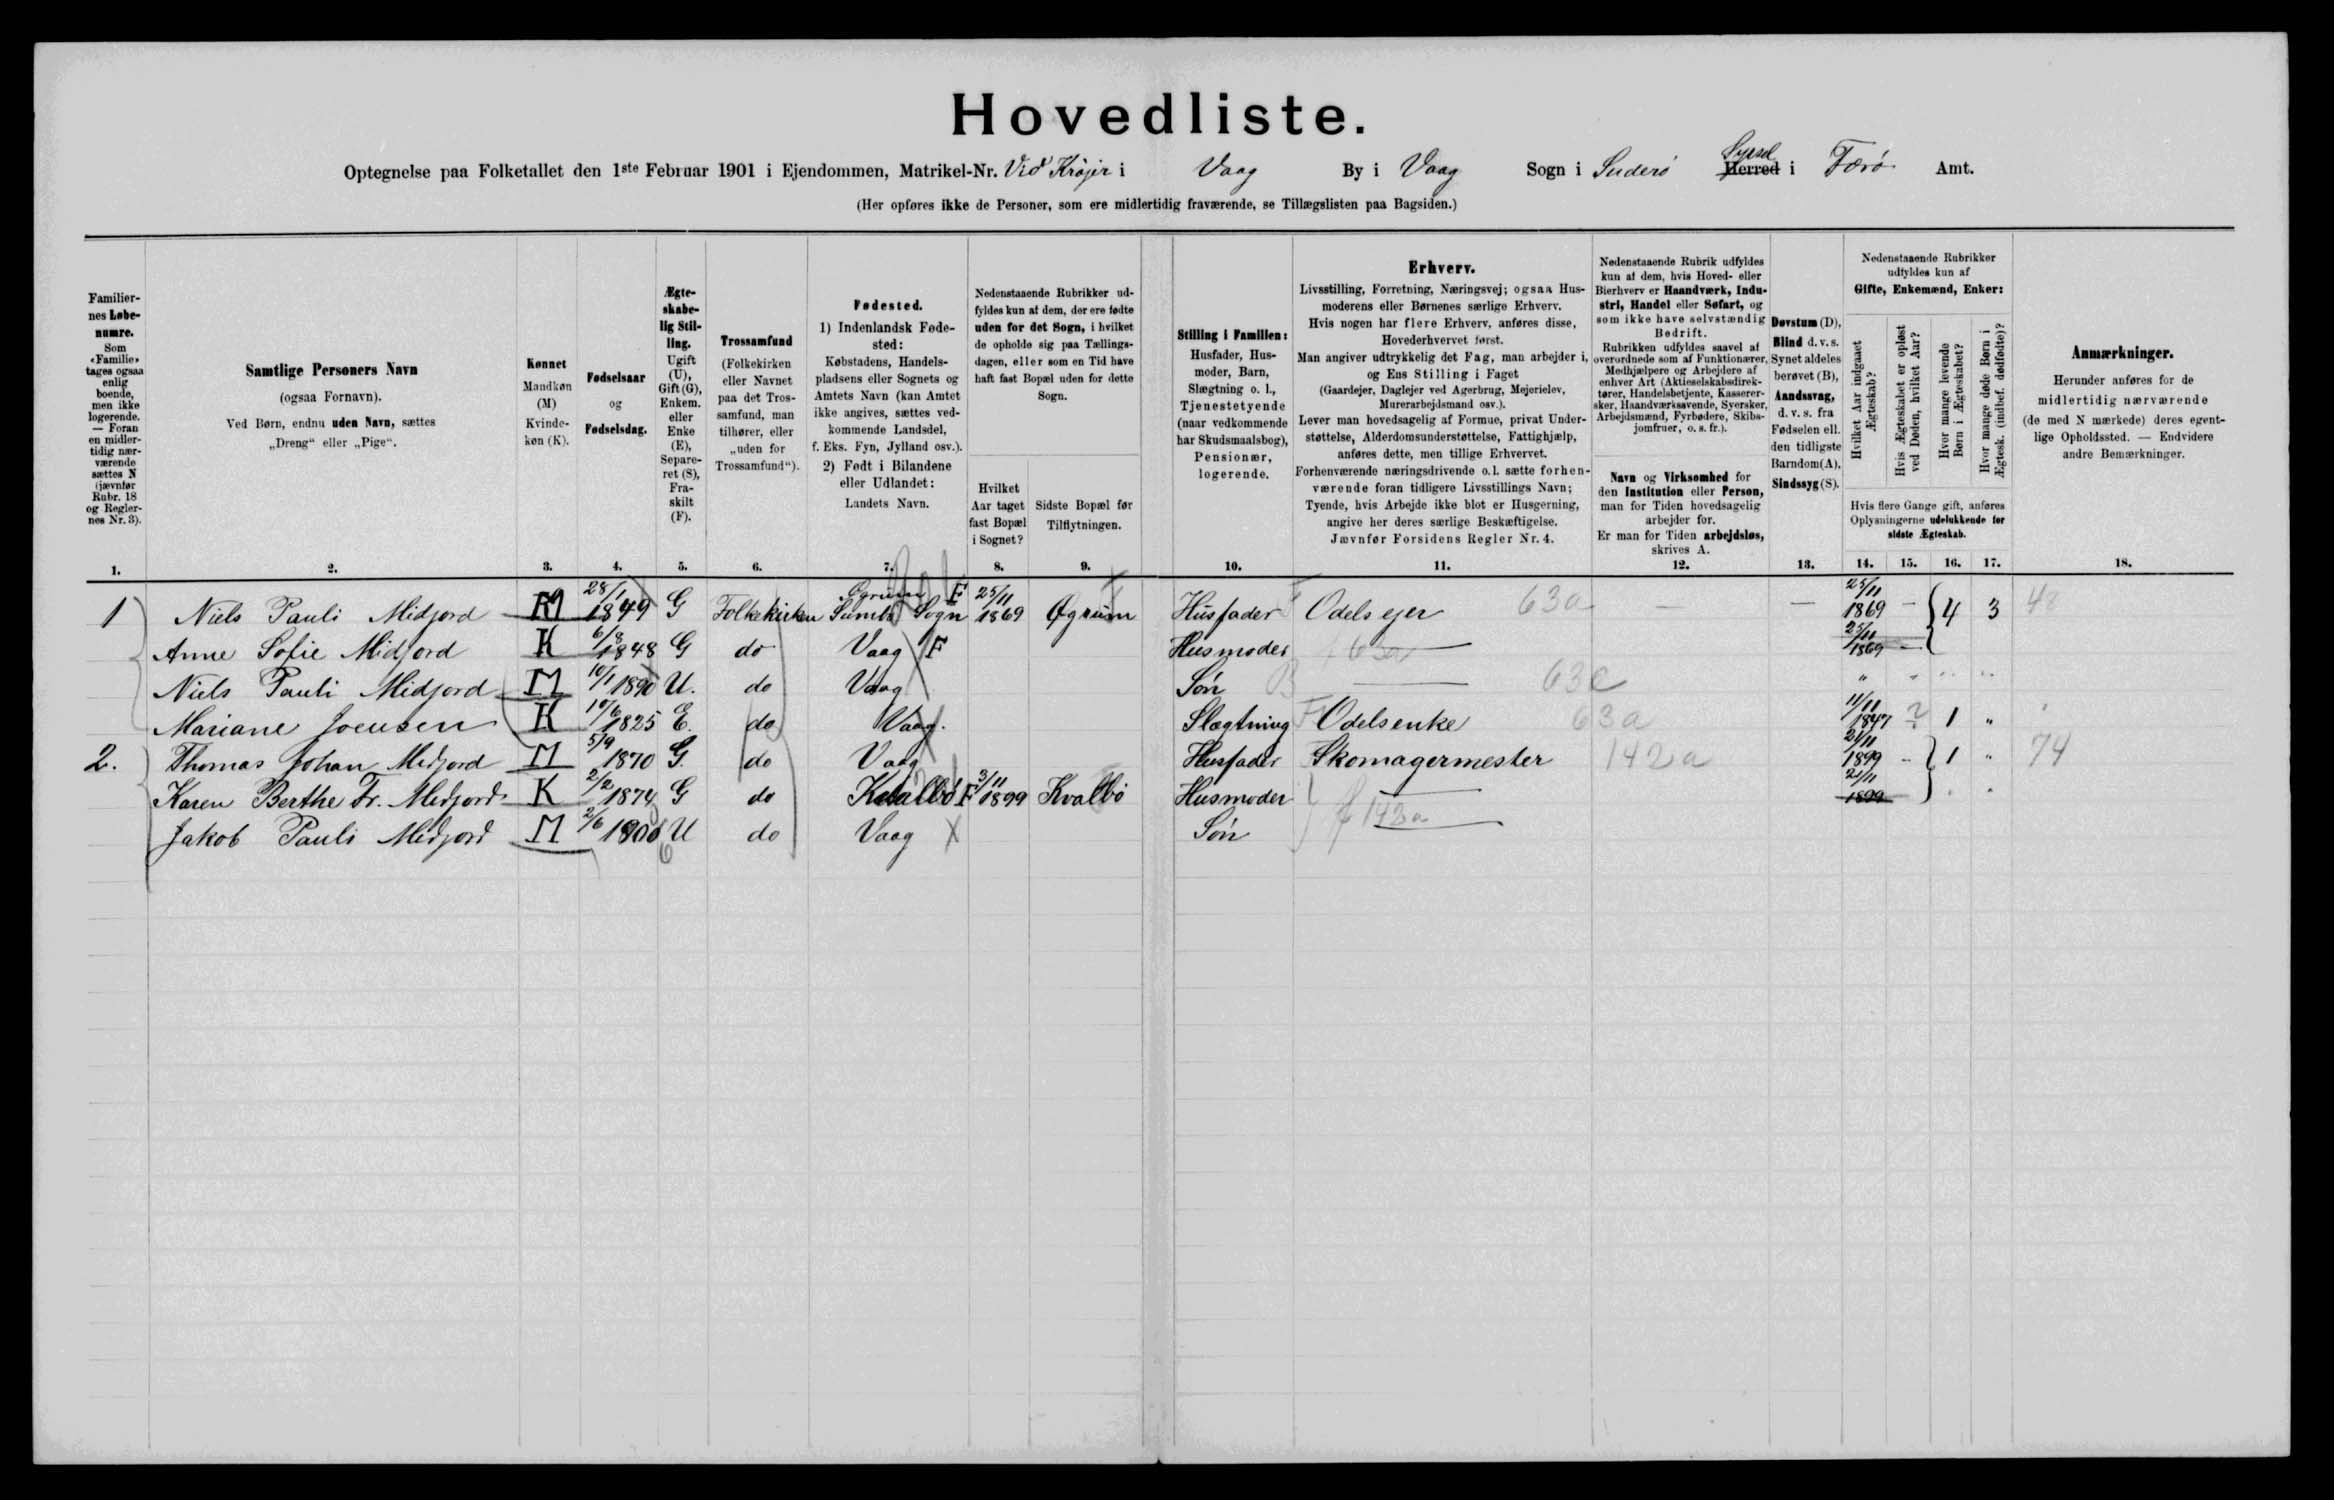 Hovedliste.
Optegnelse paa Folketallet den 1ste Februar 1901 i Ejendommen, Matrikel-Nr. Vid Krøjir i Vaag By i Vaag Sogn i Suderø Herred Syssel i Færø Amt.
(Her opføres ikke de Personer, som ere midlertidig fraværende, se Tillægslisten paa Bagsiden.)
Familiernes Løbenumre.
Som «Familie» tages ogsaa enlig boende, men ikke logerende. — Foran en midlertidig nærværende sættes N (jævnfør Rubr. 18 og Reglernes Nr. 3).
1.
Samtlige Personers Navn
(ogsaa Fornavn).
Ved Børn, endnu uden Navn, sættes
„Dreng“ eller „Pige“.
2.
Kønnet
Mandkøn
(M)
Kvinde-
køn (K).
3.
Fødselsaar
og
Fødselsdag.
4.
Ægte-
skabe-
lig Stil-
ling.
Ugift
(U),
Gift (G),
Enkem.
eller
Enke
(E),
Separe-
ret (S),
Fra-
skilt
(F).
5.
Trossamfund
(Folkekirken
eller Navnet
paa det Tros-
samfund, man
tilhører, eller
„uden for
Trossamfund“).
6.
Fødested.
1) Indenlandsk Føde-
sted:
Købstadens, Handels-
pladsens eller Sognets og
Amtets Navn (kan Amtet
ikke angives, sættes ved-
kommende Landsdel,
f. Eks. Fyn, Jylland osv.).
2) Født i Bilandene
eller Udlandet:
Landets Navn.
7.
Nedenstaaende Rubrikker ud-
fyldes kun af dem, der ere fødte
uden for det Sogn, i hvilket
de opholde sig paa Tællings-
dagen, eller som en Tid have
haft fast Bopæl uden for dette
Sogn.
Hvilket
Aar taget
fast Bopæl
i Sognet?
8.
Sidste Bopæl før
Tilflytningen.
9.
Stilling i Familien:
Husfader, Hus-
moder, Barn,
Slægtning o. l.,
Tjenestetyende
(naar vedkommende
har Skudsmaalsbog),
Pensionær,
logerende.
10.
Erhverv.
Livsstilling, Forretning, Næringsvej; ogsaa Hus-
moderens eller Børnenes særlige Erhverv.
Hvis nogen har flere Erhverv, anføres disse,
Hovederhvervet først.
Man angiver udtrykkelig det Fag, man arbejder i,
og Ens Stilling i Faget
(Gaardejer, Daglejer ved Agerbrug, Mejerielev,
Murerarbejdsmand osv.).
Lever man hovedsagelig af Formue, privat Under-
støttelse, Alderdomsunderstøttelse, Fattighjælp,
anføres dette, men tillige Erhvervet.
Forhenværende næringsdrivende o. l. sætte forhen-
værende foran tidligere Livsstillings Navn;
Tyende, hvis Arbejde ikke blot er Husgerning,
angive her deres særlige Beskæftigelse.
Jævnfør Forsidens Regler Nr. 4.
11.
Nedenstaaende Rubrik udfyldes
kun af dem, hvis Hoved- eller
Bierhverv er Haandværk, Indu-
stri, Handel eller Søfart, og
som ikke have selvstændig
Bedrift.
Rubrikken udfyldes saavel af
overordnede som af Funktionærer,
Medhjælpere og Arbejdere af
enhver Art (Aktieselskabsdirek-
tører, Handelsbetjente, Kasserer-
sker, Haandværkssvende, Syersker,
Arbejdsmænd, Fyrbødere, Skibs-
jomfruer, o. s. fr.).
Navn og Virksomhed for
den Institution eller Person,
man for Tiden hovedsagelig
arbejder for.
Er man for Tiden arbejdsløs,
skrives A.
12.
Døvstum (D),
Blind d. v. s.
Synet aldeles
berøvet (B),
Aandssvag,
d. v. s. fra
Fødselen ell.
den tidligste
Barndom (A),
Sindssyg (S).
13.
Nedenstaaende Rubrikker
udfyldes kun af
Gifte, Enkemænd, Enker:
Hvilket Aar indgaaet Ægteskab?
Hvis Ægteskabet er opløst ved Døden, hvilket Aar?
Hvor mange levende Børn i Ægteskabet?
Hvor mange døde Børn i Ægtesk. (indbef. dødfødte)?
Hvis flere Gange gift, anføres
Oplysningerne udelukkende for
sidste Ægteskab.
14. 15. 16. 17.
Anmærkninger.
Herunder anføres for de
midlertidig nærværende
(de med N mærkede) deres egent-
lige Opholdssted. — Endvidere
andre Bemærkninger.
18.
1 Niels Pauli Midjord M 28/1 1849 G Folkekirken Øgrum Sumbø Sogn F 25/11 1869 Øgrum Husfader Odelsejer 63a — — 25/11 1869 - 4 3 48
Anne Sofie Midjord K 6/8 1848 G do Vaag F Husmoder 63a 25/11 1869 -
Niels Pauli Midjord M 10/1 1890 U. do Vaag Søn 63c " " " "
Mariane Joensen K 10/6 1825 E. do Vaag. Slægtning Odelsenke 63a 11/11 1847 ? 1 "
2. Thomas Johan Midjord M 5/9 1870 G. do Vaag Husfader Skomagermester 142a 21/11 1899 - 1 " 74
Karen Berthe Fr. Midjord K 2/2 1874 G do Kvalbø F 3/11 1899 Kvalbø Husmoder f 142a 21/11 1899
Jakob Pauli Midjord M 2/6 1900 U do Vaag X Søn